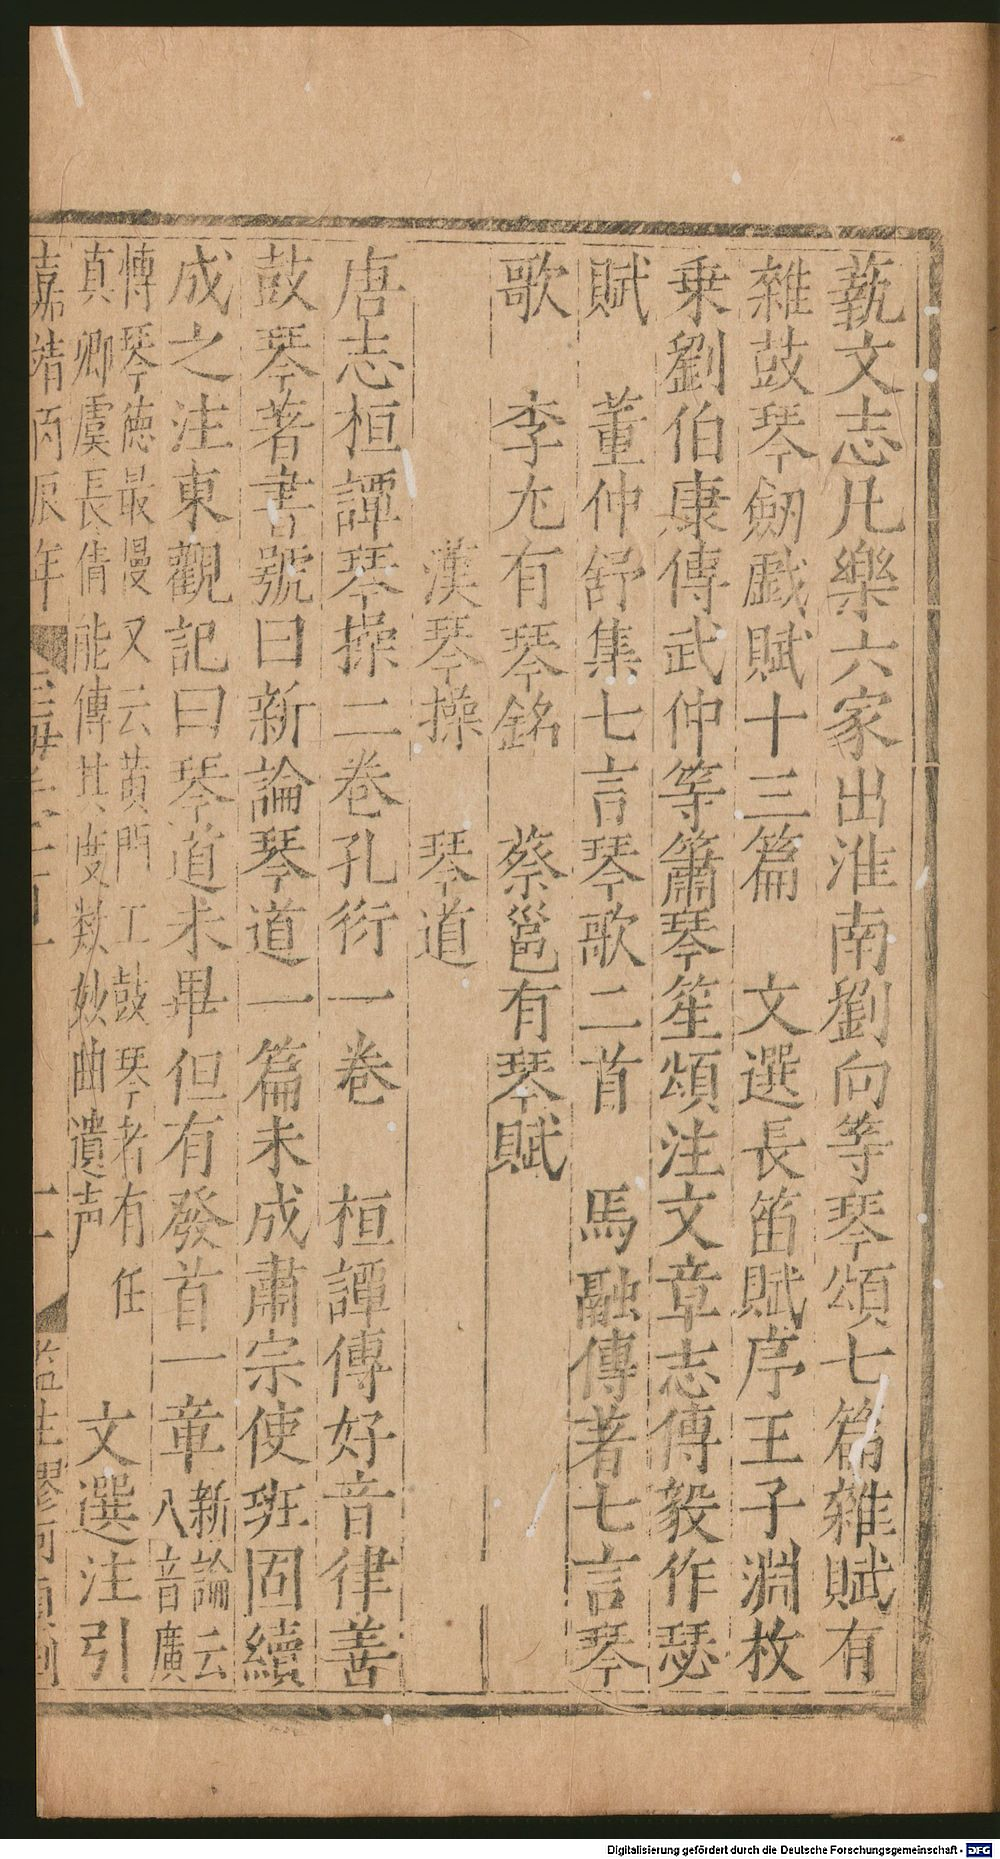 藝文志凡樂六家出淮南劉向等琴頌七篇雜賦有
雜鼓琴劒戲賦十三篇 文選長笛賦序王子淵枚
乗劉伯康傅武仲等簫琴笙頌注文章志傅毅作瑟
賦 董仲舒集七言琴歌二首 馬融傳著七言琴
歌 李尤有琴銘 蔡邕有琴賦
漢琴操 琴道
唐志桓譚琴操二卷孔衍一卷 桓譚傳好音律善
鼓琴著書號曰新論琴道一篇未成肅宗使班固續
成之注東觀記曰琴道未畢但有發首一章新論云八音廣
愽琴德最優又云黄門工鼓琴者有任真卿虞長倩能傳其度數妙曲遺声 文選注引
嘉靖丙辰年
監生廖
Digitalisierung gefördert durch die Deutsche Forschungsgemeinschaft - DFG